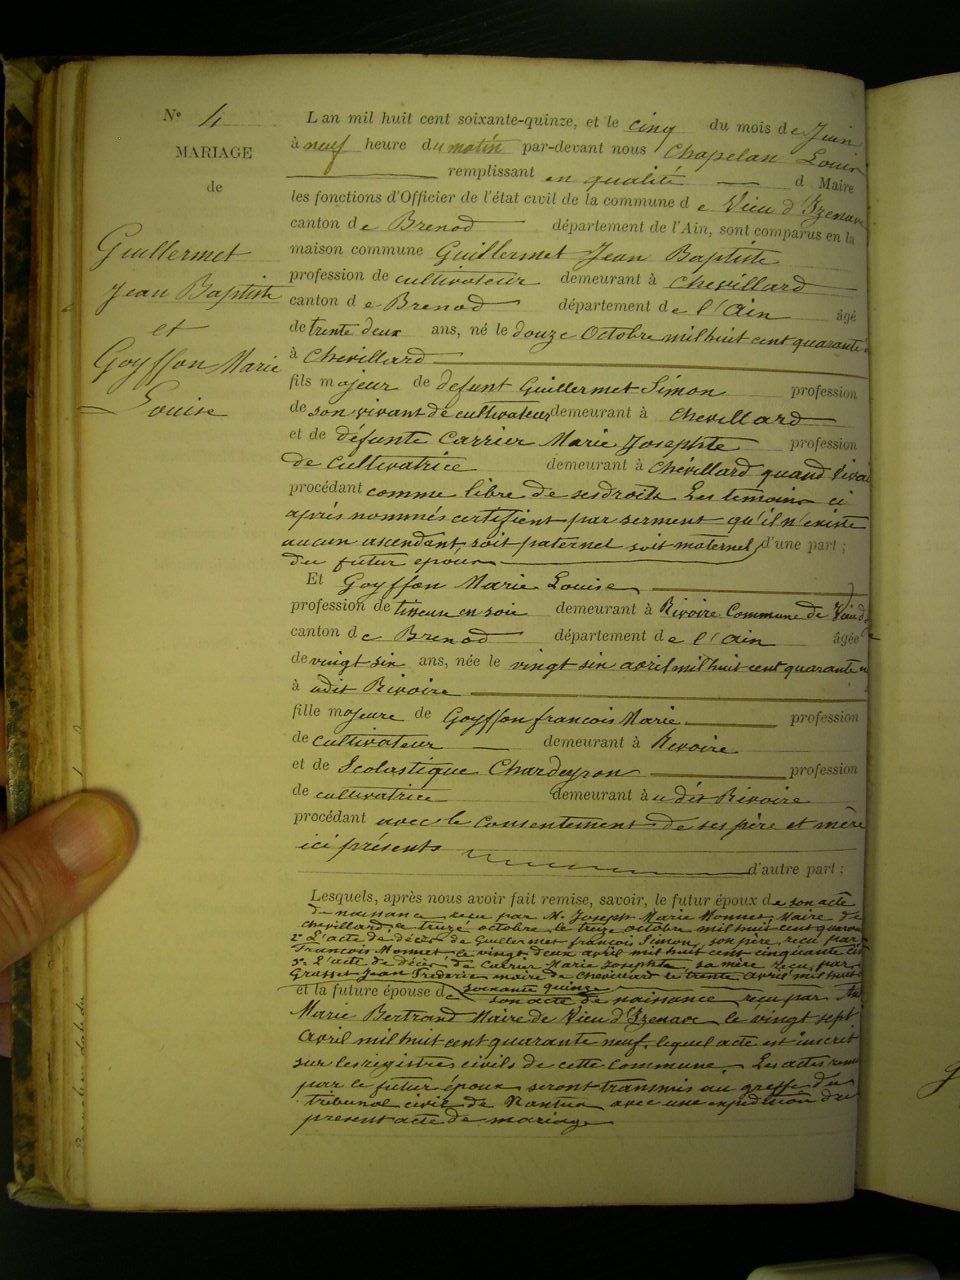 N° 4
MARIAGE
de
Guillermet
Jean Baptiste
et
Goyffon Marie
Louise
L an mil huit cent soixante-quinze, et le cinq du mois de Juin
à neuf heure du matin par-devant nous Chapelan Louis
remplissant en qualité d Maire
les fonctions d'Officier de l'état civil de la commune d e Vieu d'Izenave
canton de Brenod département de l'Ain, sont comparus en la
maison commune Guillermet Jean Baptiste
profession de cultivateur demeurant à Chevillard
canton d e Brenod département de l'Ain âgé
de trente deux ans, né le douze Octobre mil huit cent quarante
à Chevillard
fils majeur de defunt Guillermet Simon profession
de son vivant de cultivateur demeurant à Chevillard
et de défunte Carrier Marie Josephte profession
de cultivatrice demeurant à Chevillard quand vivai
procédant comme libre de ses droits Les temoins ci
après nommés certifient par serment qu'il n'existe
aucun ascendant, soit paternel soit maternel, d'une part ;
du futur epoux
Et Goyffon Marie Louise
profession de tisseur en soie demeurant à Rivoire Commune de
canton de Brenod département de l'Ain âgée
de vingt six ans, née le vingt six avril mil huit cent quarante
à udit Rivoire
fille majeure de Goyffon francois Marie profession
de cultivateur demeurant à Rivoire
et de Scolastique Chardeyron profession
de cultivatrice demeurant à u dit Rivoire
procédant avec le consentement de ses père et mère
ici présents
d'autre part ;
Lesquels, après nous avoir fait remise, savoir, le futur époux de son acte
de naissance reçu par M. Joseph Marie Monnet, Maire de
Chevillard, le treize octobre, le treize octobre mil huit cent quaran
2° L'acte de décès de Guillermet françois Simon, son père, reçu par
François Monnet le vingt deux avril mil huit cent cinquante
3° L'acte de décès de Carrier Marie Josephte, sa mère reçu par
Grasset Jean Frederic maire de Chevillard le trente Avril mil huit
soixante quinze
et la future épouse de son acte de naissance, reçu par
Marie Bertrand Maire de Vieu d'Izenave le vingt sept
Avril mil huit cent quarante neuf, lequel acte est inscrit
sur les registres civils de cette commune. Les actes remis
par le futur époux seront transmis au greffe du
tribunal civil de Nantua avec une expédition du
présent acte de mariage